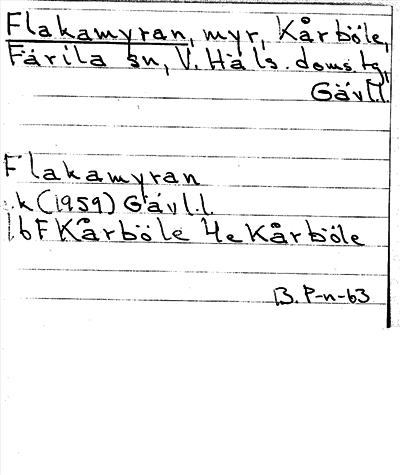 Flakamyran, myr, Kårböle,
Färila sn, V. Häls. doms.tg,
Gävl.l.
Flakamyran
.k (1959) Gävl.l.
16F Kårböle 4e Kårböle
B. P-n-63